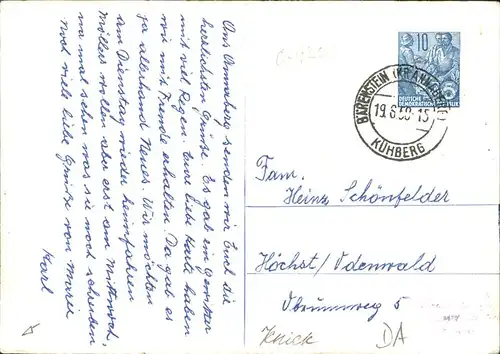 Aus Annaberg senden wir Euch die
herzlichsten Grüße. Es gab ein Gewitter
mit viel Regen. Eure liebe Karte haben
wir mit Freude erhalten. Da gab es
ja allerhand Neues. Wir möchten
am Dienstag wieder heimfahren
Möllers wollen aber erst am Mittwoch,
na mal sehn was sie noch schreiben.
Noch viele liebe Grüße von Marie
Karl
10
DEUTSCHE
DEMOKRATISCHE REPUBLIK
BÄRENSTEIN (KR ANNABERG)
19.6.58-15
KÜHBERG
Fam.
Heinz Schönfelder
Höchst/Odenwald
5
Knick
DA